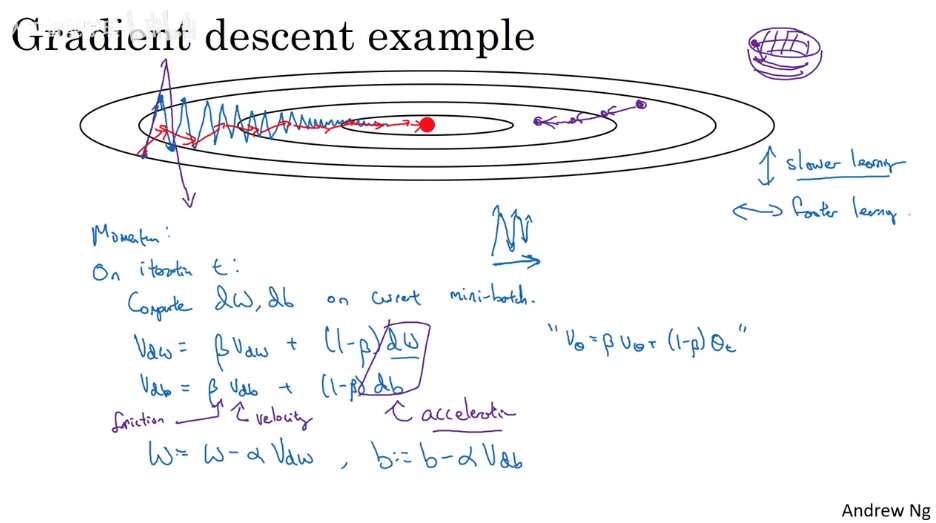 Gradient descent example
slower learning
faster learning.
Momentum:
On iteration t:
Compute dW, db on current mini-batch.
Vdw = β Vdw + (1-β) dW
"Vθ = β Vθ + (1-β) θt"
Vdb = β Vdb + (1-β) db
friction velocity acceleration
W = W - α Vdw , b := b - α Vdb
Andrew Ng